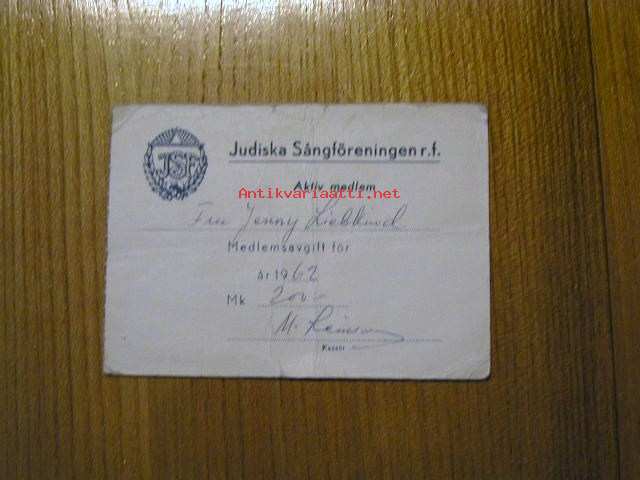 JSF
Judiska Sångföreningen r.f.
Aktiv medlem
Antikvariaatti.net
Fru Jenny
Medlemsavgift för
år 1962
Mk 200:-
M.
Kassör